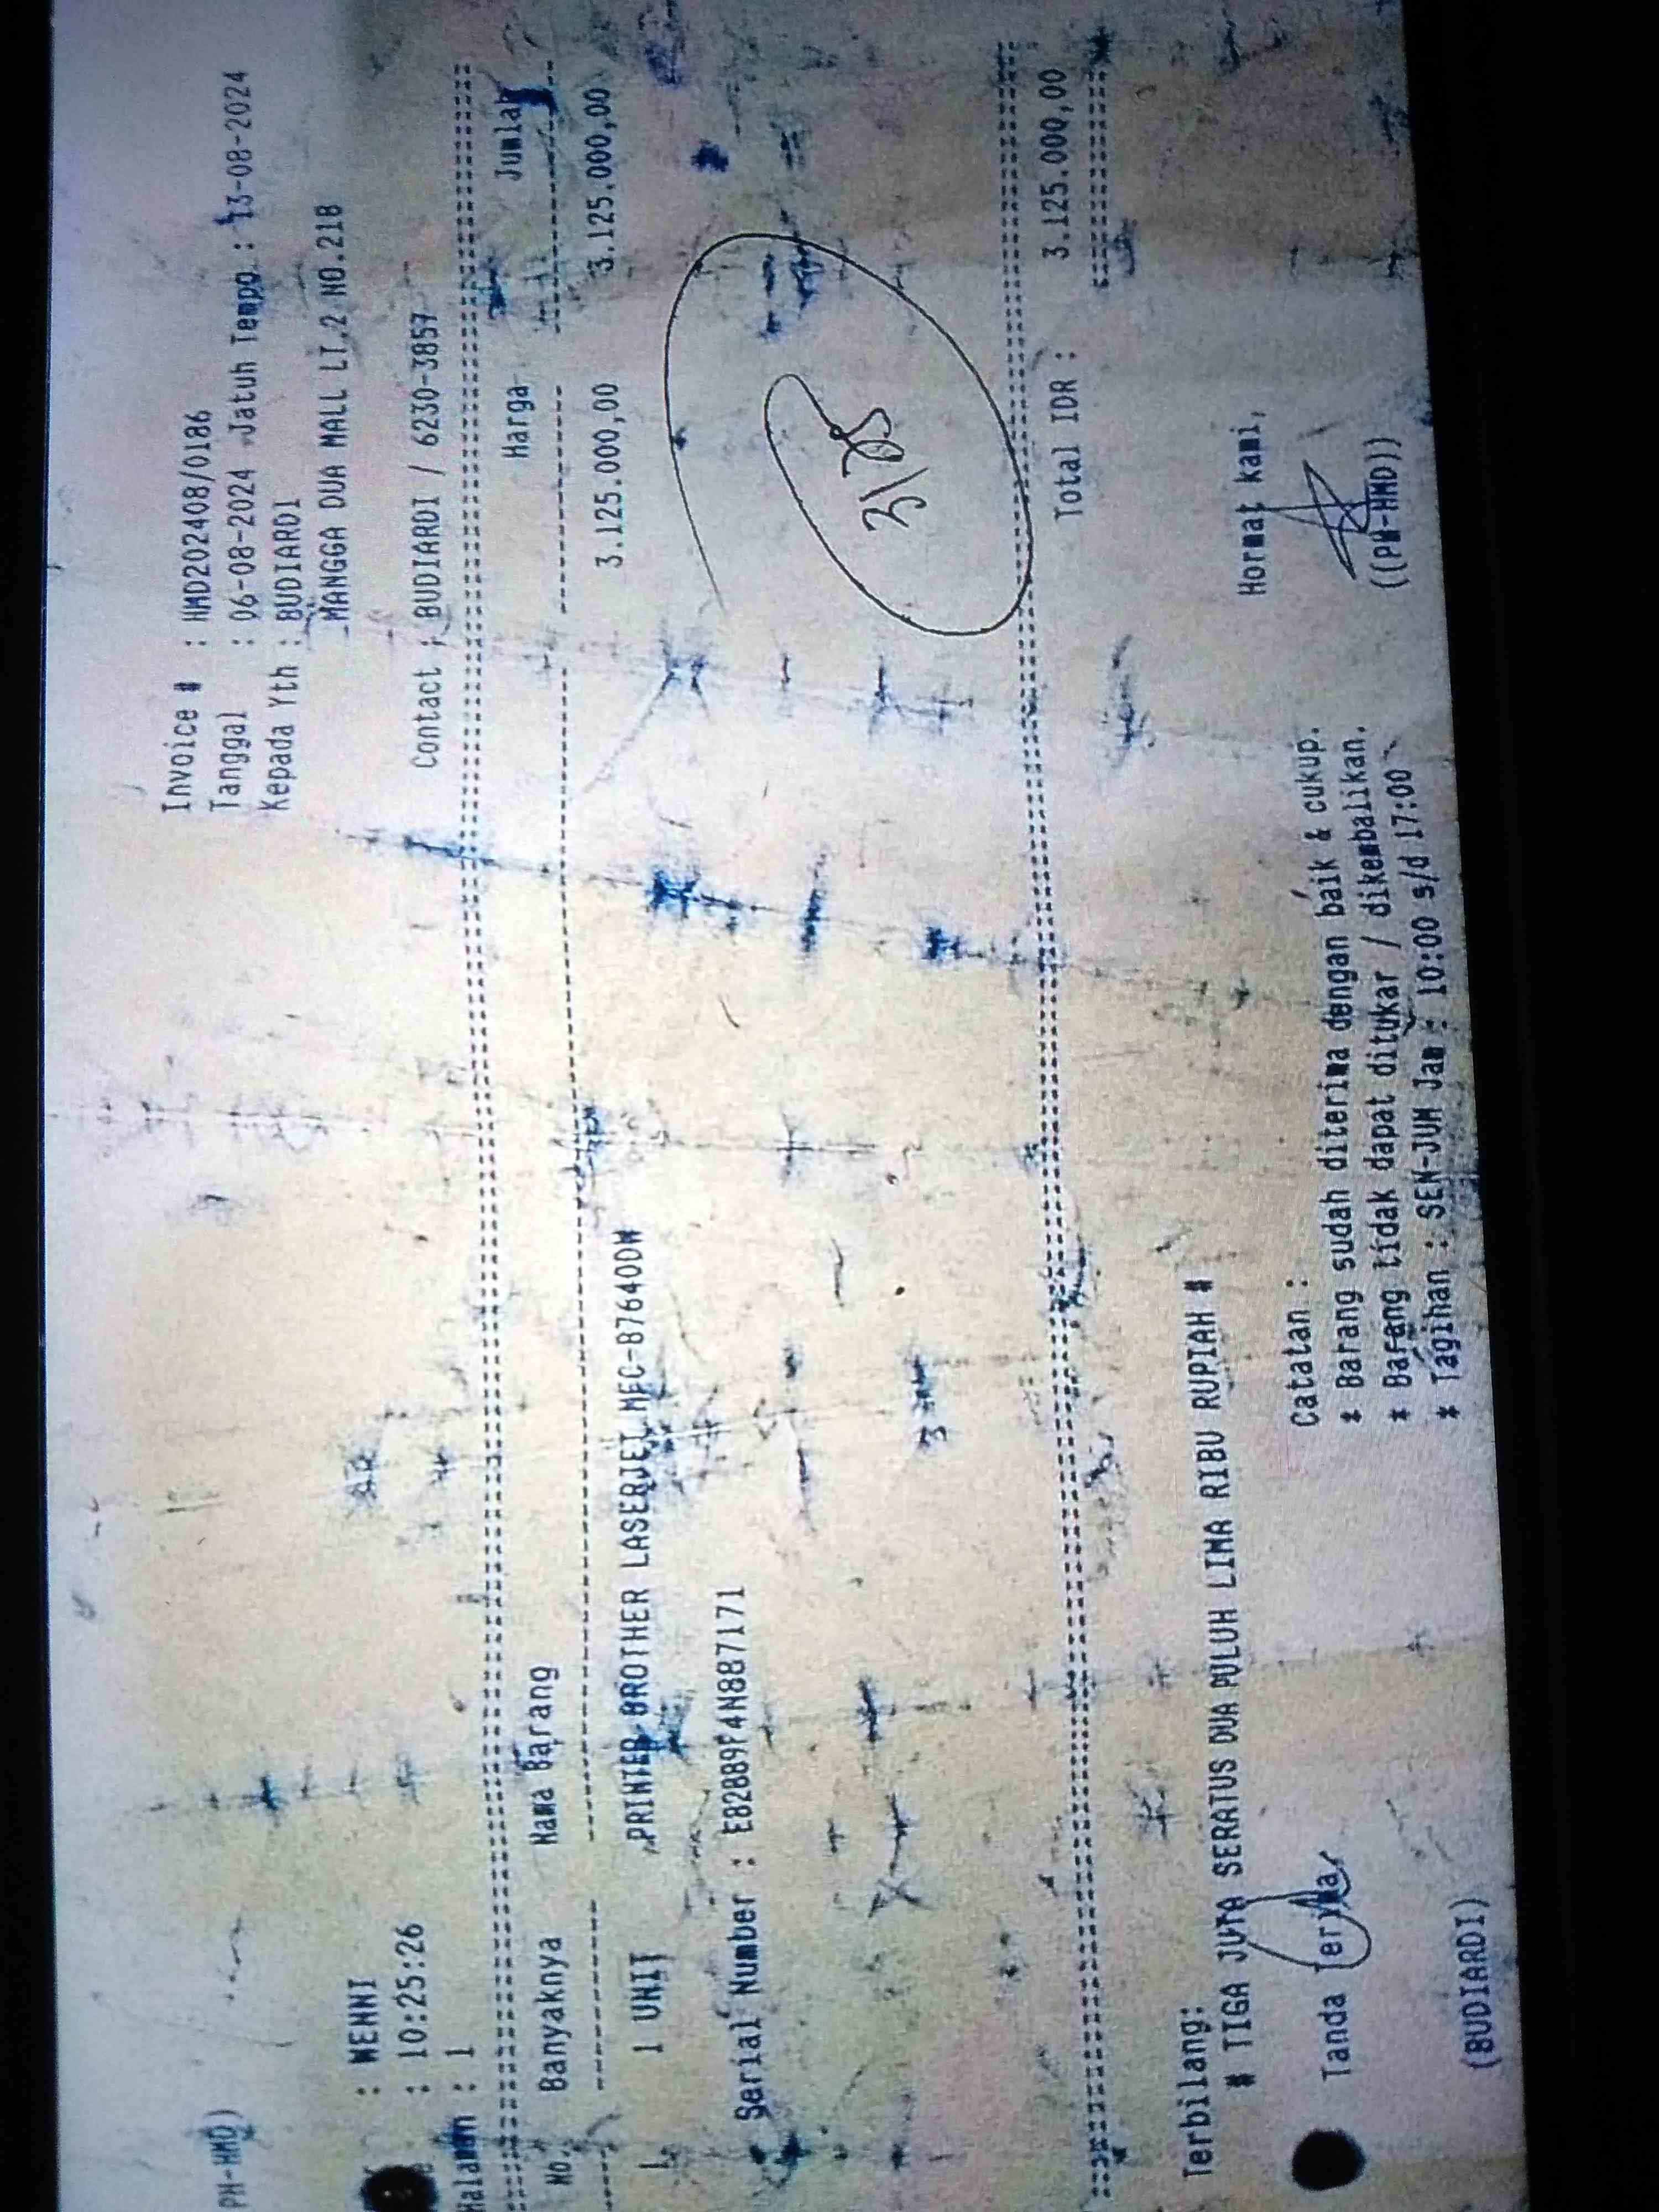 PW-HMD)
Invoice # : HMD202408/0186
Tanggal : 06-08-2024 Jatuh Tempo : 13-08-2024
Kepada Yth : BUDIARDI
MANGGA DUA MALL LT.2 NO.218
: WENNI
: 10:25:26
Halaman : 1
Contact : BUDIARDI / 6230-3857
No. Banyaknya Nama Barang Harga Jumlah
1 1 UNIT PRINTER BROTHER LASERJET MFC-B7640DW 3.125.000,00 3.125.000,00
Serial Number : E82889F4N887171
3125
Total IDR : 3.125.000,00
Terbilang:
# TIGA JUTA SERATUS DUA PULUH LIMA RIBU RUPIAH #
Tanda Terima
Hormat kami,
Catatan :
* Barang sudah diterima dengan baik & cukup.
* Barang tidak dapat ditukar / dikembalikan.
* Tagihan : SEN-JUM Jam : 10:00 s/d 17:00
(BUDIARDI)
((PW-HMD))